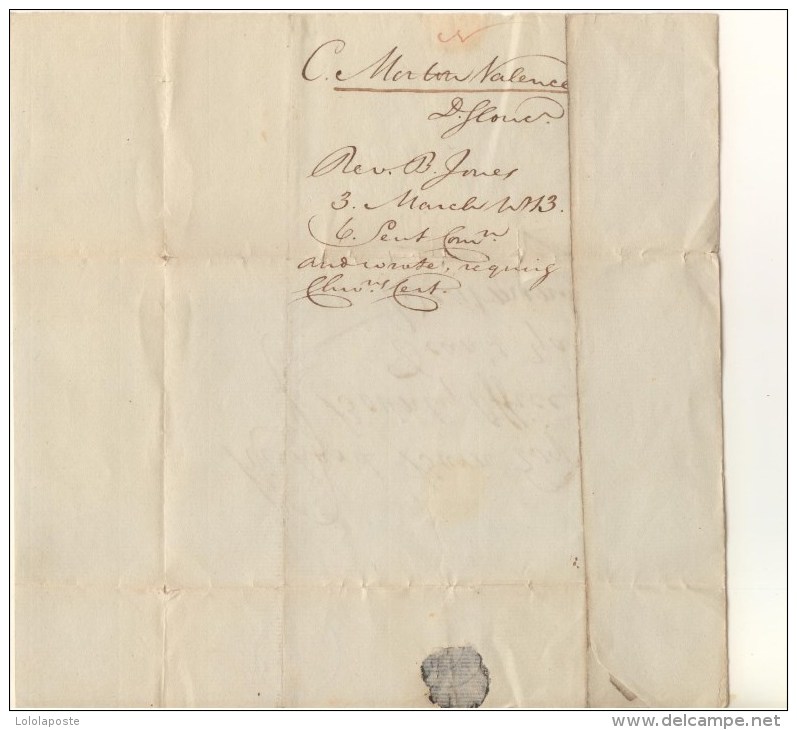 C. Morton Valence
D. Glouc^r.
Rev. B. Jones
3. March 1813.
6. Sent Com^n.
and wrote, requirg
Chwn^s Cert.
Lololaposte
www.delcampe.net